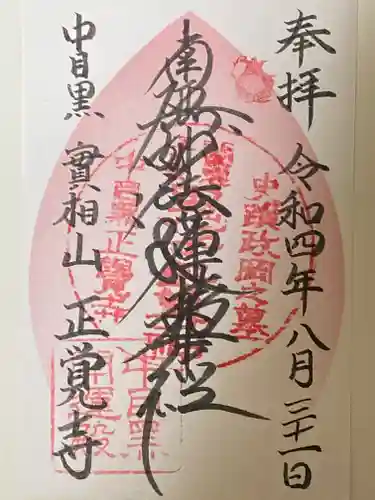 奉拝
令和四年八月三十一日
南無妙法蓮華経
中目黒
實相山
正覚寺
史蹟政岡之墓
中目黒正覺寺
中目黒